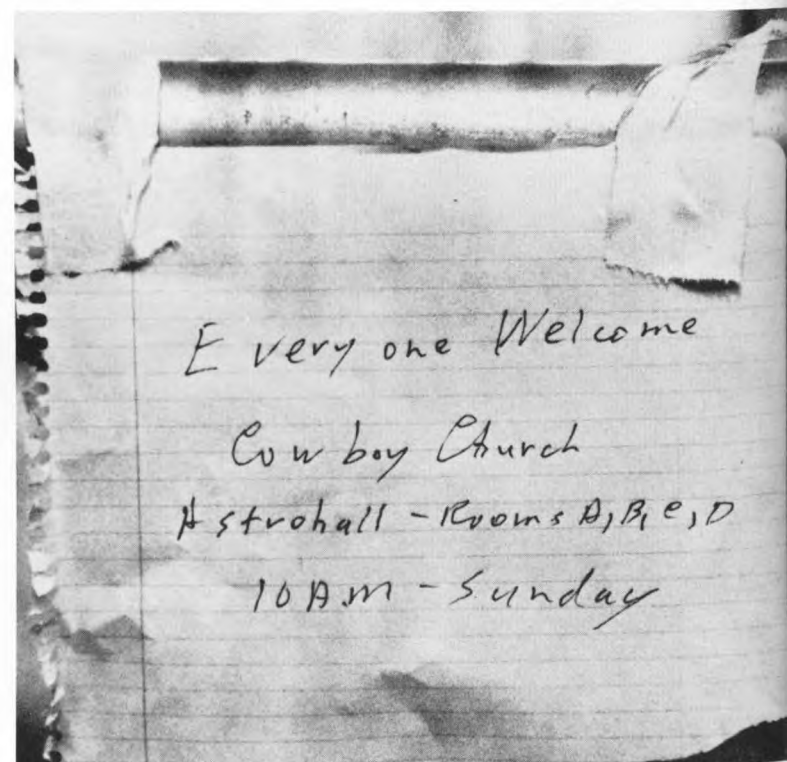 Everyone Welcome
Cowboy Church
Astrohall - Rooms A, B, C, D
10 A.M - Sunday